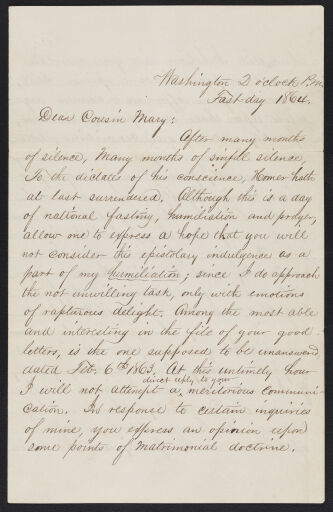 Washington 2 o'clock P.m.
Fast-day 1864.
Dear Cousin Mary:
After many months
of silence, Many months of sinful silence,
To the dictates of his conscience, Homer hath
at last surrendered. Although this is a day
of national fasting, humiliation and prayer,
allow one to express a hope that you will
not consider this epistolary indulgence as a
part of my humiliation; since I do approach
the not unwilling task, only with emotions
of rapturous delight. Among the most able
and interesting in the file of your good
letters, is the one supposed to be unanswered
dated Feb. 6th 1863. At this untimely hour
direct reply to your
I will not attempt a meritorious communi-
cation. In response to certain inquiries
of mine, you express an opinion upon
some points of Matrimonial doctrine.